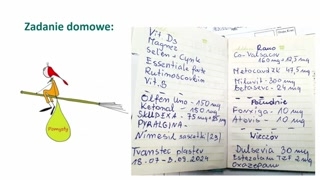 Zadanie domowe:
Pomysły
Vit D3
Magnez
Selen + Cynk
Essentiale forte
Rutinoscorbin
Vit. B
Olfen uno - 150 mg
Ketonal - 150 mg
SKUDEXA - 75 mg + 25 mg
PYRALGINA -
Nimesil saszetki (2g)
Transtec plaster
Rano
Co-Valsacor
160 mg + 12,5 mg
Metocard ZK 47,5 mg
Milurit - 300 mg
Betaserc - 24 mg
Południe
Forxiga - 10 mg
Atoris - 10 mg
Wieczór
Dulsevia 30 mg
Estazolam TZF 2 mg